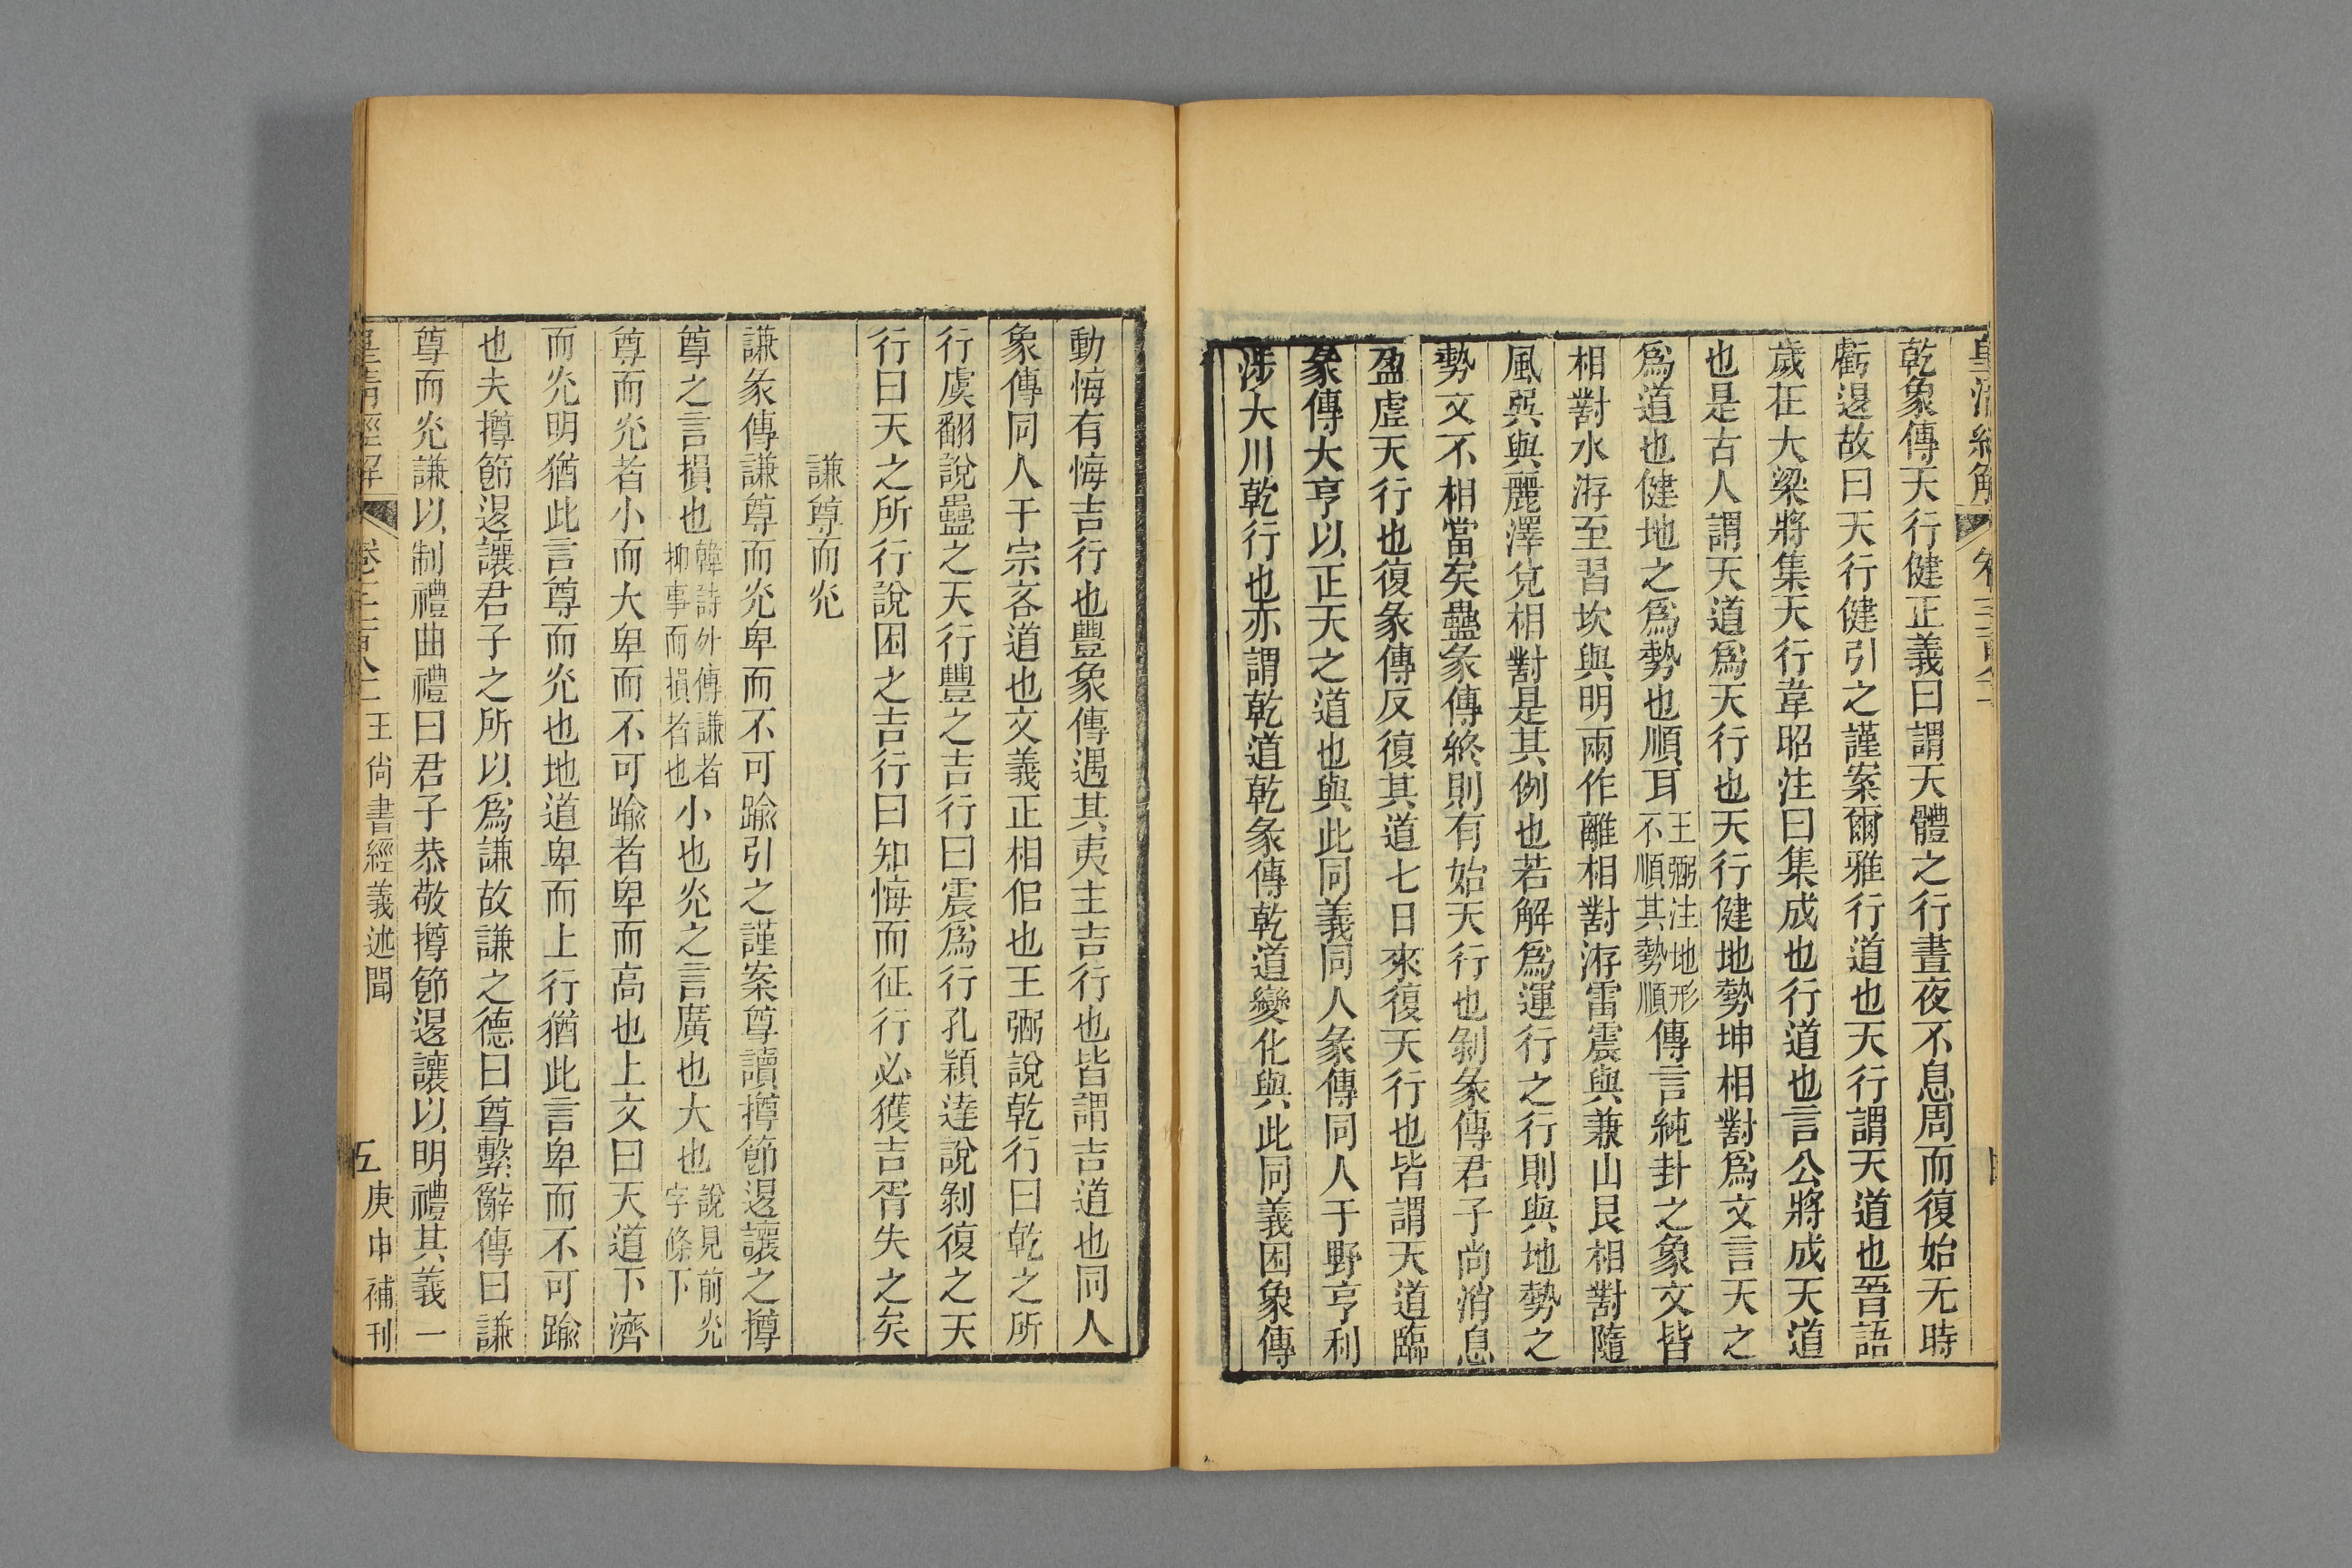 乾象傳天行健正義曰謂天體之行晝夜不息周而復始无時
虧退故曰天行健引之謹案爾雅行道也天行謂天道也晉語
歲在大梁將集天行韋昭注曰集成也行道也言公將成天道
也是古人謂天道爲天行也天行健地勢坤相對爲文言天之
爲道也健地之爲勢也順耳王弼注地形不順其勢順傳言純卦之象文皆
相對水洊至習坎與明兩作離相對洊雷震與兼山艮相對隨
風巽與麗澤兌相對是其例也若解爲運行之行則與地勢之
勢文不相當矣蠱彖傳終則有始天行也剝彖傳君子尚消息
盈虛天行也復彖傳反復其道七日來復天行也皆謂天道臨
彖傳大亨以正天之道也與此同義同人彖傳同人于野亨利
涉大川乾行也亦謂乾道乾彖傳乾道變化與此同義困象傳
動悔有悔吉行也豐象傳遇其夷主吉行也皆謂吉道也同人
象傳同人于宗吝道也文義正相佀也王弼說乾行曰乾之所
行虞翻說蠱之天行豐之吉行曰震爲行孔穎達說剝復之天
行曰天之所行說困之吉行曰知悔而征行必獲吉胥失之矣
謙尊而光
謙彖傳謙尊而光卑而不可踰引之謹案尊讀撙節退讓之撙
尊之言損也韓詩外傳謙者抑事而損者也小也光之言廣也大也說見前光字條下
尊而光者小而大卑而不可踰者卑而高也上文曰天道下濟
而光明猶此言尊而光也地道卑而上行猶此言卑而不可踰
也夫撙節退讓君子之所以爲謙故謙之德曰尊繫辭傳曰謙
尊而光謙以制禮曲禮曰君子恭敬撙節退讓以明禮其義一
皇清經解 卷一千一百八十一 王尚書經義述聞 五 庚申補刊